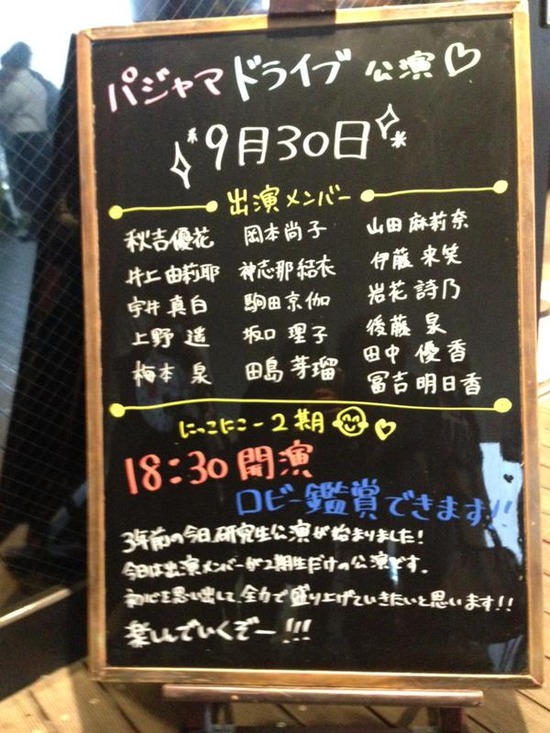 パジャマドライブ 公演♡
9月30日
出演メンバー
秋吉優花 岡本尚子 山田麻莉奈
井上由莉耶 神志那結衣 伊藤来笑
宇井真白 駒田京伽 岩花詩乃
上野遥 坂口理子 後藤泉
梅本泉 田島芽瑠 田中優香
冨吉明日香
にこにこー2期
18:30開演
ロビー鑑賞できます!!
3年前の今日、研究生公演が始まりました!
今日は出演メンバーが2期生だけの公演です。
初心を思い出して、全力で盛り上げていきたいと思います!!
楽しんでいくぞー!!!